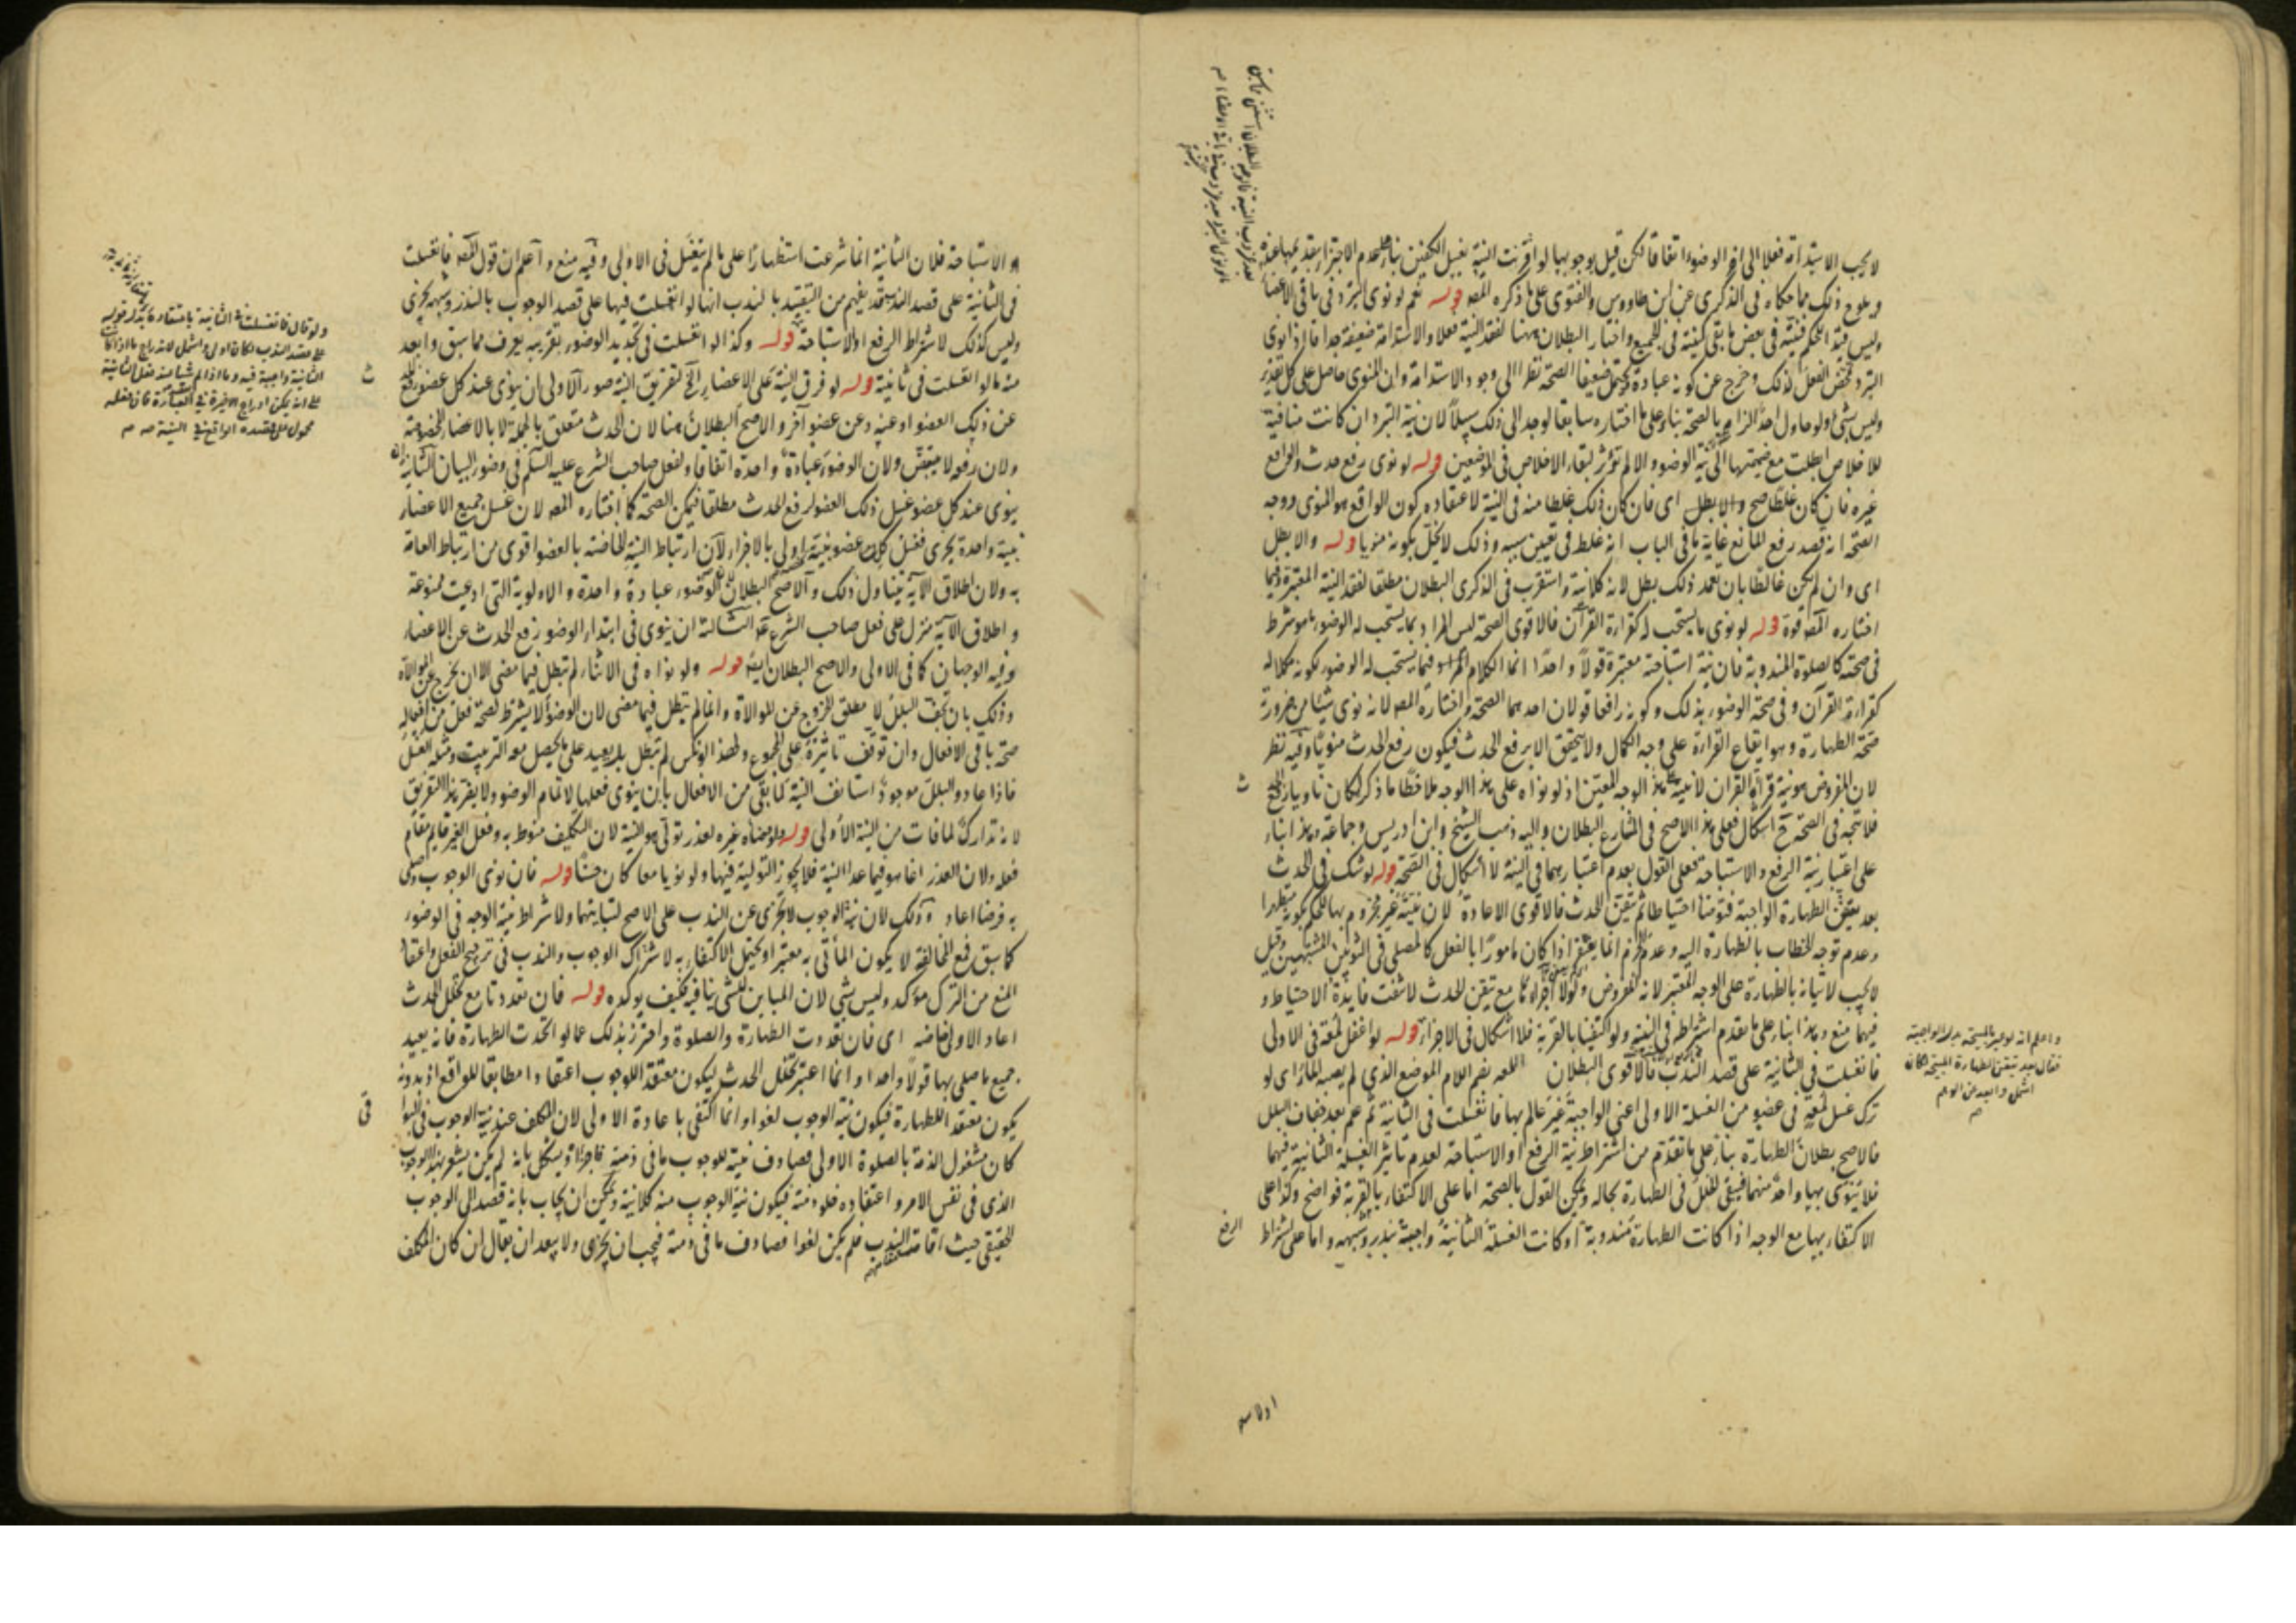 لا يجب الاستدامة فعلا الى اخر الوضوء اتفاقا لكن قيل بوجوبها لو اقترنت النية بغسل الكفين بناء على عدم الاجتزاء بتقديمها عنده
ويلوح ذلك مما حكاه في الذكرى عن ابن طاووس والفتوى على ما ذكره المصـ قوله نعم لو نوى التبرد في باقي الاعضاء
وليس فيه الحكم فنيته في بعض ما بقي كنيته في الجميع واختار البطلان هنا لفقد النية فعلا والاستدامة ضعيفة جدا فاذا نوى
التبرد تمحض الفعل لذلك وخرج عن كونه عبادة ويحتمل ضعيفا الصحة نظرا الى وجود الاستدامة وان المنوي حاصل على كل تقدير
وليس بشي ولو حاول احد الزام بالصحة بناء على ما اختاره سابقا لوجد الى ذلك سبيلا لان نية التبرد ان كانت منافية
للاخلاص ابطلت مع ضميمتها الى نية الوضوء والا لم تؤثر لبقاء الاخلاص في الموضعين قوله لو نوى رفع حدث والواقع
غيره فان كان غلطا صح والا بطل اى فان كان ذلك غلطا منه في النية لاعتقاده كون الواقع هو المنوي ووجه
الصحة انه قصد رفع المانع غاية ما في الباب انه غلط في تعيين سببه وذلك لا يخل بكونه منويا قوله والا بطل
اى وان لم يكن غالطا بان تعمد ذلك بطل لانه كلا نية واستقرب في الذكرى البطلان مطلقا لفقد النية المعتبرة وفيما
اختاره المصـ قوة قوله لو نوى ما يستحب له كقراءة القرآن فالاقوى الصحة ليس المراد بما يستحب له الوضوء ما هو شرط
في صحته كالصلوة المندوبة فان نية استباحته معتبرة قولا واحدا انما الكلام فيما يستحب له الوضوء لكونه مكملا له
كقراءة القرآن وفي صحة الوضوء بذلك وكونه رافعا قولان احدهما الصحة واختاره المصـ لانه نوى شيئا من ضرورته
صحة الطهارة وهو ايقاع القراءة على وجه الكمال ولا يتحقق الا برفع الحدث فيكون رفع الحدث منويا وفيه نظر
لان المفروض هو نية قراءة القران لا نية على هذا الوجه المعين اذ لو نواه على هذا الوجه ملاحظا ما ذكر لكان ناويا رفع الحدث
فلا يتجه في الصحة ح اشكال فعلى هذا الاصح في المتنازع البطلان واليه ذهب الشيخ وابن ادريس وجماعة وهذا بناء
على اعتبار نية الرفع والاستباحة فعلى القول بعدم اعتبارهما في النية لا اشكال في الصحة قوله لو شك في الحدث
بعد تيقن الطهارة الواجبة فتوضأ احتياطا ثم تيقن الحدث فالاقوى الاعادة لان نيته غير مجزوم بها للحكم بكونه متطهرا
وعدم توجه الخطاب بالطهارة اليه وعدم الجزم انما يغتفر اذا كان مامورا بالفعل كالمصلي في الثوبين المشتبهين وقيل
لا يجب لاتيانه بالطهارة على الوجه المعتبر لانه المفروض ولولا اجزاؤها مع تيقن الحدث لانتفت فايدة الاحتياط و
فيهما منع وهذا بناء على ما تقدم اشتراطه في النية ولو اكتفينا بالقربة فلا اشكال في الاجزاء قوله لو اغفل لمعة في الاولى
فانغسلت في الثانية على قصد الندب فالاقوى البطلان اللمعة بضم اللام الموضع الذي لم يصبه الماء اى لو
ترك غسل لمعة في عضو من الغسلة الاولى اعني الواجبة غير عالم بها فانغسلت في الثانية ثم علم بعد جفاف البلل
فالاصح بطلان الطهارة بناء على ما تقدم من اشتراط نية الرفع او الاستباحة لعدم تاثير الغسلة الثانية فيهما
فلا ينوى بها واحد منهما فيبقى الخلل في الطهارة بحاله ويمكن القول بالصحة اما على الاكتفاء بالقربة فواضح وكذا على
الاكتفاء بها مع الوجه اذا كانت الطهارة مندوبة او كانت الغسلة الثانية واجبة بنذر وشبهه واما على اشتراط
الرفع
واعلم انه لو عبر بالمبيحة بدل الواجبة
فقال بعد تيقن الطهارة المبيحة لكان
اشمل وابعد من الوهم
او الاستباحة فلان الثانية انما شرعت استظهارا على ما لم يغسل في الاولى وفيه منع واعلم ان قول المصـ فانغسلت
في الثانية على قصد الندب قد يفهم من التقييد بالندب انها لو انغسلت فيها على قصد الوجوب بالنذر وشبهه يجزى
وليس كذلك لاشتراط الرفع او الاستباحة قوله وكذا لو انغسلت في تجديد الوضوء تقريبه يعرف مما سبق وابعد
منه ما لو انغسلت في ثانية قوله لو فرق النية على الاعضاء الخ لتفريق النية صور الاولى ان ينوى عند كل عضو رفع الحدث
عن ذلك العضو او عنه وعن عضو آخر والاصح البطلان هنا لان الحدث متعلق بالجملة لا بالاعضاء المخصوصة
ولان رفعه لا يتبعض ولان الوضوء عبادة واحدة اتفاقا ولفعل صاحب الشرع عليه السلم في وضوء البيان الثانية ان
ينوى عند كل عضو غسل ذلك العضو لرفع الحدث مطلقا فيمكن الصحة كما اختاره المصـ لان غسل جميع الاعضاء
بنية واحدة يجزى فغسل كل عضو بنية اولى بالاجزاء لان ارتباط النية الخاصة بالعضو اقوى من ارتباط العامة
به ولان اطلاق الآية يتناول ذلك والاصح البطلان لان الوضوء عبادة واحدة والاولوية التي ادعيت ممنوعة
واطلاق الآية منزل على فعل صاحب الشرع عم الثالثة ان ينوى في ابتداء الوضوء رفع الحدث عن الاعضاء
وفيه الوجهان كما في الاولى والاصح البطلان ايضا قوله ولو نواه في الاثناء لم تبطل فيما مضى الا ان يخرج عن الموالاة
وذلك بان يجف البلل لا مطلق الخروج عن الموالاة وانما لم تبطل فيما مضى لان الوضوء لا يشترط لصحة فعل من افعاله
صحة باقي الافعال وان توقف تاثيره على المجموع ولهذا لو نكس لم تبطل بل يعيد على ما يحصل معه الترتيب ومثله الغسل
فاذا عاد والبلل موجود استانف النية لما بقي من الافعال بان ينوى فعلها لاتمام الوضوء ولا يضر هذا التفريق
لانه تدارك لما فات من النية الاولى قوله ولو وضأه غيره لعذر تولى هو النية لان التكليف منوط به وفعل الغير قايم مقام
فعله ولان العذر انما هو فيما عدا النية فلا يجوز التولية فيها ولو نويا معا كان حسنا قوله فان نوى الوجوب وصلى
به فرضا اعاد وذلك لان نية الوجوب لا تجزى عن الندب على الاصح لتباينهما ولاشتراط نية الوجه في الوضوء
كما سبق فمع المخالفة لا يكون الماتي به معتبرا ويحتمل الاكتفاء به لاشتراك الوجوب والندب في ترجيح الفعل واعتقاد
المنع من الترك مؤكد وليس بشي لان المباين للشي ينافيه فكيف يوكده قوله فان تعددتا مع تخلل الحدث
اعاد الاولى خاصة اى فان تعددت الطهارة والصلوة واحترز بذلك عما لو اتحدت الطهارة فانه يعيد
جميع ما صلى بها قولا واحدا وانما اعتبر تخلل الحدث ليكون معتقدا للوجوب اعتقادا مطابقا للواقع اذ بدونه
يكون معتقدا للطهارة فيكون نية الوجوب لغوا وانما اكتفى باعادة الاولى لان المكلف عند نية الوجوب في الثواني
كان مشغول الذمة بالصلوة الاولى فصادف نيته للوجوب ما في ذمته فاجزاه ويشكل بانه لم يكن يشعر بهذا الوجوب
الذي في نفس الامر واعتقاده خلو ذمته فيكون نية الوجوب منه كلا نية ويمكن ان يجاب بانه قصد الى الوجوب
الحقيقي حيث اقامه مقام الندب فلم يكن لغوا فصادف ما في ذمته فيجب ان يجزى ولا يبعد ان يقال ان كان المكلف
ولو قال فانغسلت في الثانية باعتقاد بدل قوله
على قصد الندب لكان اولى واشمل